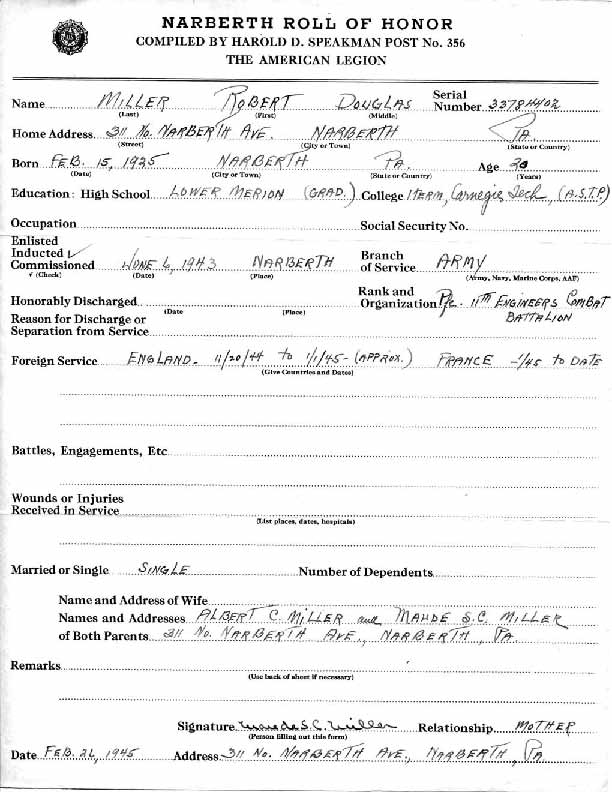 NARBERTH ROLL OF HONOR
COMPILED BY HAROLD D. SPEAKMAN POST No. 356
THE AMERICAN LEGION
Name MILLER ROBERT DOUGLAS Serial Number 33784402
(Last) (First) (Middle)
Home Address 311 No. NARBERTH AVE. NARBERTH PA.
(Street) (City or Town) (State or Country)
Born FEB. 15, 1925 NARBERTH PA. Age 20
(Date) (City or Town) (State or Country) (Years)
Education: High School LOWER MERION (GRAD.) College 1 TERM, Carnegie Tech (A.S.T.P.)
Occupation Social Security No.
Enlisted
Inducted √
Commissioned JUNE 6, 1943 NARBERTH Branch of Service ARMY
√ (Check) (Date) (Place) (Army, Navy, Marine Corps, AAF)
Honorably Discharged Rank and Organization Pfc. 11TH ENGINEERS COMBAT
(Date (Place) BATTALION
Reason for Discharge or
Separation from Service
Foreign Service ENGLAND. 11/20/44 to 1/1/45 - (APPROX.) FRANCE - 1/45 TO DATE
(Give Countries and Dates)
Battles, Engagements, Etc
Wounds or Injuries
Received in Service
(List places, dates, hospitals)
Married or Single SINGLE Number of Dependents
Name and Address of Wife
Names and Addresses ALBERT C. MILLER and MAUDE S.C. MILLER
of Both Parents 311 No. NARBERTH AVE., NARBERTH, PA
Remarks
(Use back of sheet if necessary)
Signature Maude S.C. Miller Relationship MOTHER
(Person filling out this form)
Date FEB. 26, 1945 Address 311 No. NARBERTH AVE., NARBERTH, PA